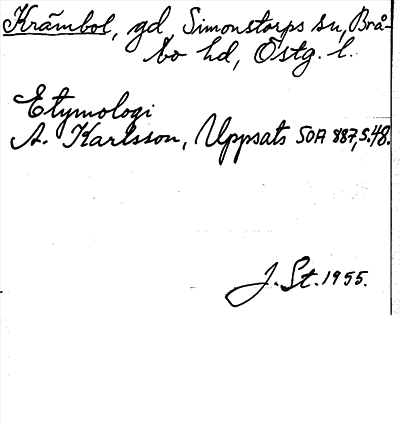 Krämbol, gd, Simonstorps sn, Brå-
bo hd, Östg. l.
Etymologi
A. Karlsson, Uppsats SOA 887, s.48.
J. St. 1955.